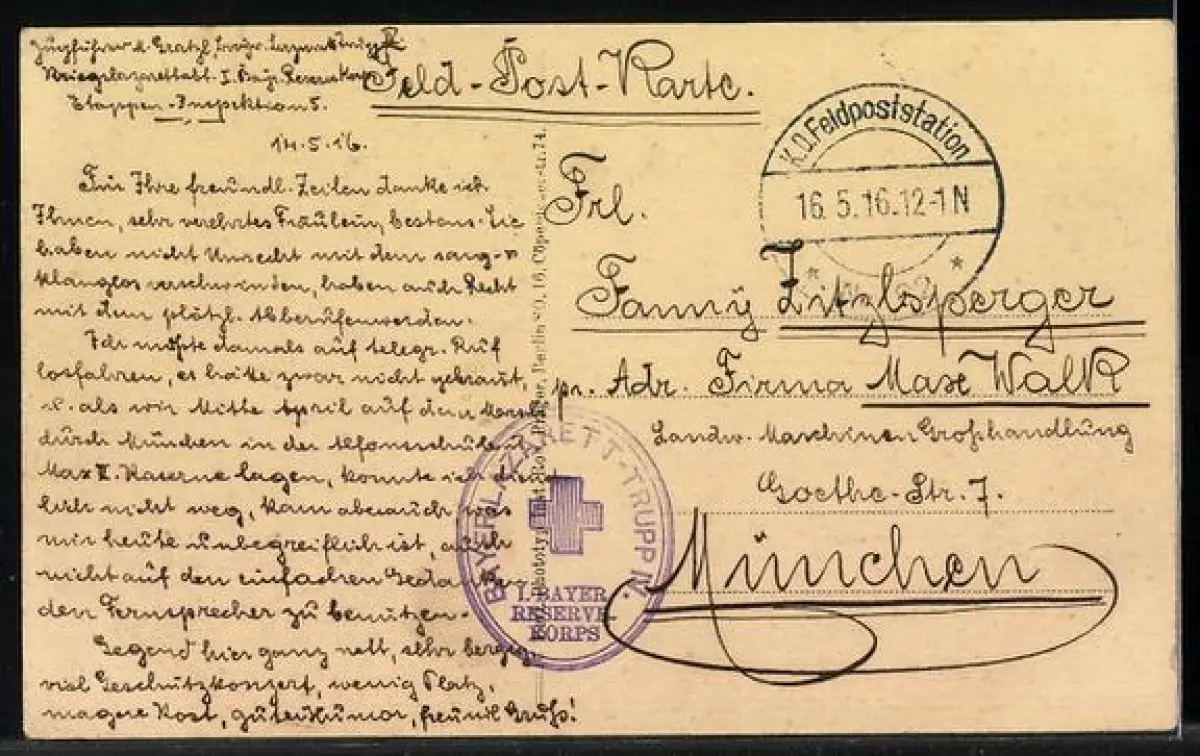 Zugführer d.
Kriegslazarettabt. I. Bayr. Reserve Korps
Etappen-Inspektion 5.
14.5.16.
Für Ihre freundl. Zeilen danke ich
Ihnen, sehr verehrtes Fräulein, bestens. Sie
haben nicht Unrecht mit dem sang- u
klanglos verschwinden, haben auch Recht
mit dem plötzl. Abberufenwerden.
Ich mußte damals auf telegr. Ruf
losfahren, es hätte zwar nicht gebraut,
u. als wir Mitte April auf dem Marsch
durch München in der Alfonsschule u
Max II. Kaserne lagen, konnte ich
nicht weg, kam aber auch was
mir heute unbegreiflich ist, auch
nicht auf den einfachen Gedanken
den Fernsprecher zu benützen.
Gegend hier ganz nett, sehr bergig,
viel Geschützkonzert, wenig Platz,
magere Kost, guter Humor, freundl Gruß!
Feld-Post-Karte.
K.D. Feldpoststation
16.5.16.12-1N
Frl.
Fanny Litzlsperger
pr. Adr. Firma Max Walk
Landw. Maschinen Großhandlung
Goethe-Str. 7.
München
BAYER. LAZARETT-TRUPP IV.
I. BAYER.
RESERVE
KORPS